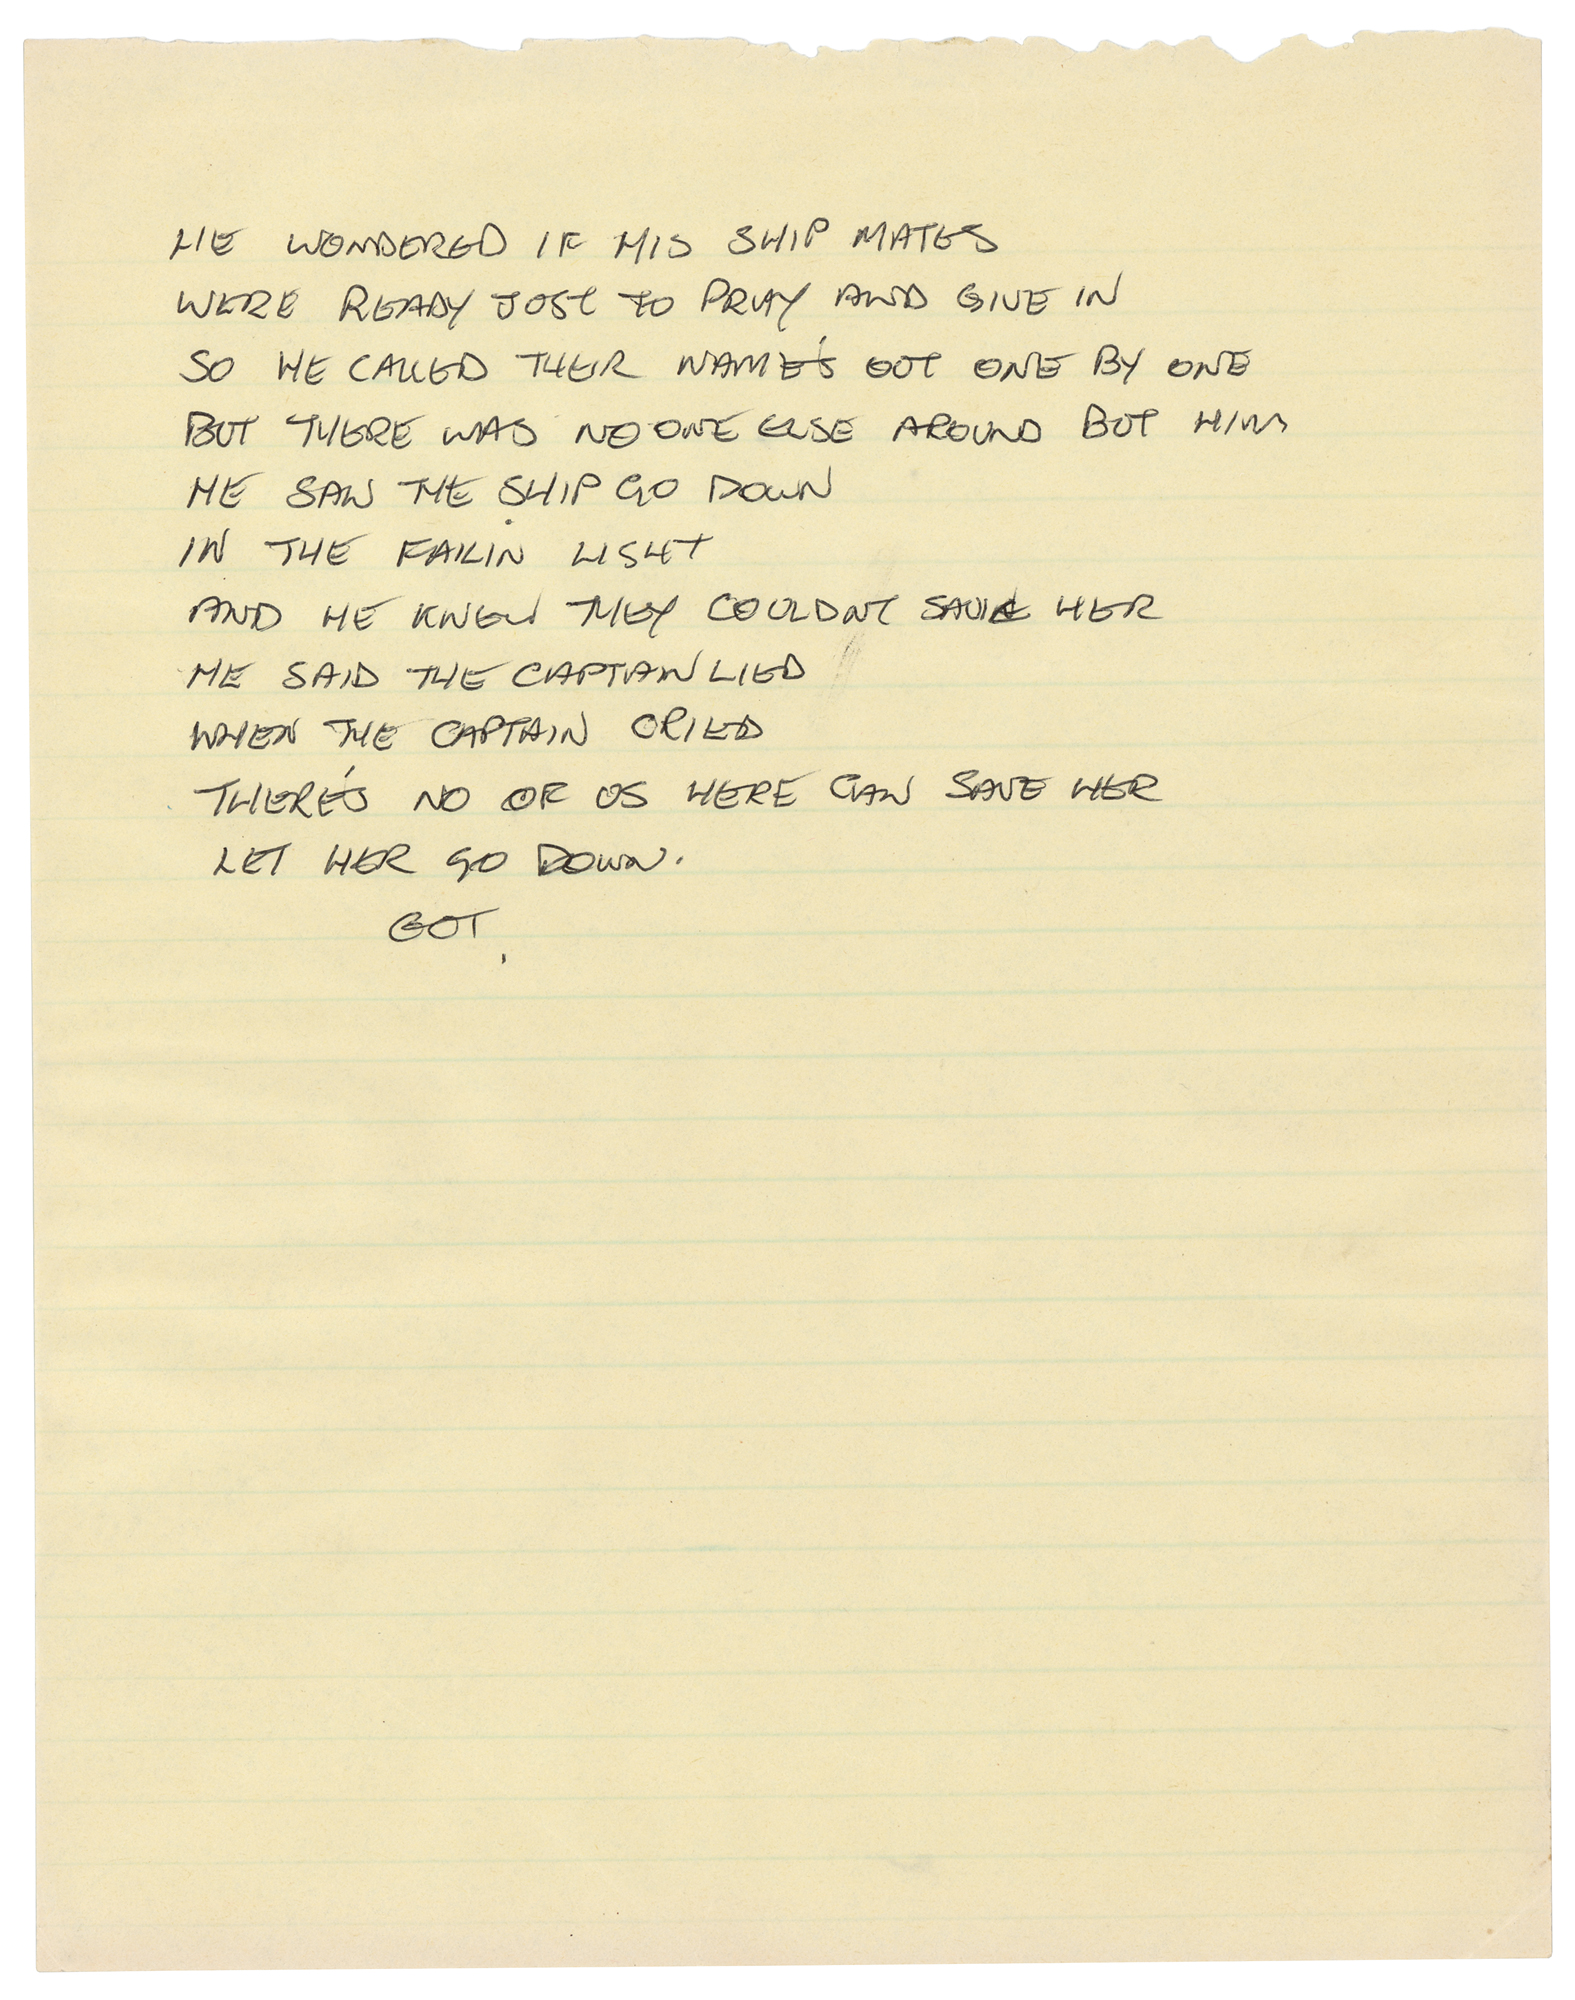 HE WONDERED IF HIS SHIP MATES
WERE READY JUST TO PRAY AND GIVE IN
SO HE CALLED THEIR NAME'S OUT ONE BY ONE
BUT THERE WAS NO ONE ELSE AROUND BUT HIM
HE SAW THE SHIP GO DOWN
IN THE FAILIN LIGHT
AND HE KNEW THEY COULDNT SAVE HER
HE SAID THE CAPTIAN LIED
WHEN THE CAPTAIN CRIED
THERE'S NO OF US HERE CAN SAVE HER
LET HER GO DOWN.
GOT,